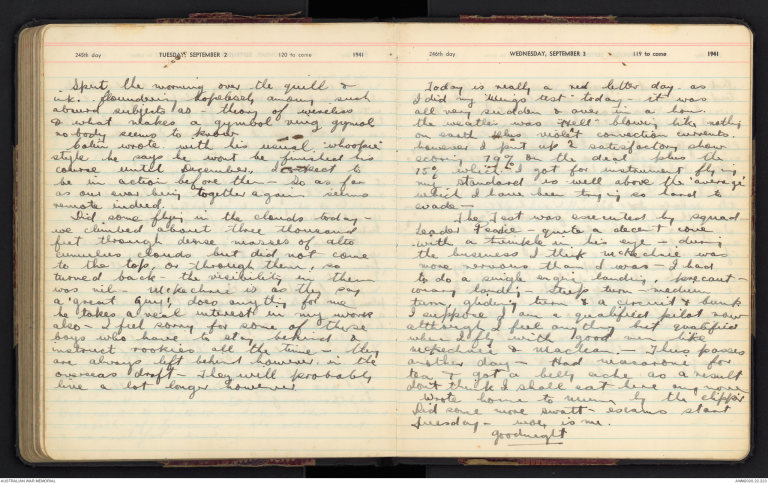 245th day TUESDAY, SEPTEMBER 2 120 to come 1941
Spent the morning over the quill &
ink. floundering hopelessly among such
absurd subjects as theory of wireless
& what makes a gymbol ring gymol
nobody seems to know
Colin wrote with his usual "whoopie"
style he says he wont be finished his
course until December. I expect to
be in action before then - So as far
as our ever being together again seems
remote indeed.
Did some flying in the clouds today -
we climbed about three thousand
feet through dense masses of alto
cumulus clouds but did not come
to the top, or through them, so
turned back - the visibility in them
was nil - McKechnie is as they say
a "great Guy", does anything for me
he takes a real interest in my work
also - I feel sorry for some of these
boys who have to stay behind &
instruct rookies all the time - they
are always left behind however in the
overseas draft - They will probably
live a lot longer however
246th day WEDNESDAY, SEPTEMBER 3 119 to come 1941
Today is really a red letter day as
I did my "Wings test" today - it was
all very sudden & over in a hour
the weather was "Hell" blowing like nothing
on earth plus violet convection currents.
however I put up a satisfactory show
scoring 79% on the deal plus the
15% which I got for instrument flying
my standard is well above the "average"
which I have been trying so hard to
evade -
The Test was executed by squad
leader - quite a decent cove
with a twinkle in his eye - during
the business I think McKechnie was
more nervous than I was - I had
to do a single engine landing, precaut-
ionary landing - steep turn - medium
turn, gliding turn & a circuit & bank
I suppose I am a qualified pilot now
although I feel anything but qualified
when I fly with good men like
McKechnie & MacLean - Thus passes
another day - Had macaroni for
tea & got a belly ache as a result
don't think I shall eat here any more
Wrote home to mum by the clipper
Did some more swatt - exams start
Tuesday - woe is me.
Goodnight
AUSTRALIAN WAR MEMORIAL